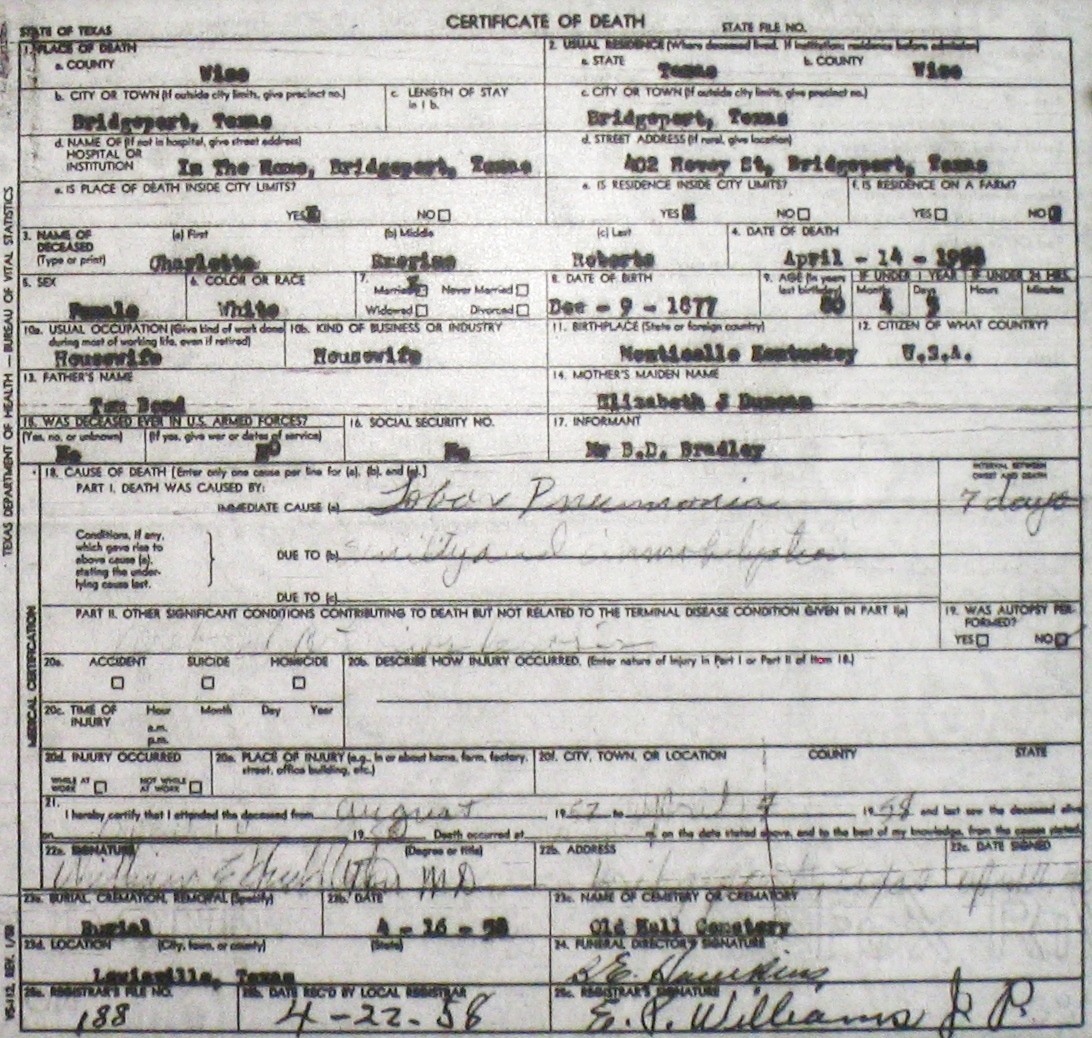 STATE OF TEXAS CERTIFICATE OF DEATH STATE FILE NO.
1. PLACE OF DEATH
a. COUNTY Wise
2. USUAL RESIDENCE (Where deceased lived. If institution: residence before admission)
a. STATE Texas b. COUNTY Wise
b. CITY OR TOWN (If outside city limits, give precinct no.) Bridgeport, Texas
c. LENGTH OF STAY in 1 b.
c. CITY OR TOWN (If outside city limits, give precinct no.) Bridgeport, Texas
d. NAME OF (If not in hospital, give street address) HOSPITAL OR INSTITUTION In The Home, Bridgeport, Texas
d. STREET ADDRESS (If rural, give location) 402 Hovey St, Bridgeport, Texas
e. IS PLACE OF DEATH INSIDE CITY LIMITS?
YES NO
e. IS RESIDENCE INSIDE CITY LIMITS?
YES NO
f. IS RESIDENCE ON A FARM?
YES NO
3. NAME OF DECEASED (Type or print)
(a) First Charlotte (b) Middle (c) Last Roberts
4. DATE OF DEATH April - 14 -
5. SEX Female
6. COLOR OR RACE White
7. Married Never Married
Widowed Divorced
8. DATE OF BIRTH Dec - 9 - 1877
9. AGE (In years last birthday) 80
IF UNDER 1 YEAR Months 4 Days
IF UNDER 24 HRS. Hours Minutes
10a. USUAL OCCUPATION (Give kind of work done during most of working life, even if retired) Housewife
10b. KIND OF BUSINESS OR INDUSTRY Housewife
11. BIRTHPLACE (State or foreign country) Monticello Kentuckey
12. CITIZEN OF WHAT COUNTRY? U.S.A.
13. FATHER'S NAME Bond
14. MOTHER'S MAIDEN NAME Elizabeth J Duncan
15. WAS DECEASED EVER IN U.S. ARMED FORCES?
(Yes, no, or unknown) No (If yes, give war or dates of service) NO
16. SOCIAL SECURITY NO. No
17. INFORMANT Mr B.D. Bradley
18. CAUSE OF DEATH [Enter only one cause per line for (a), (b), and (c).]
INTERVAL BETWEEN ONSET AND DEATH
PART I. DEATH WAS CAUSED BY:
IMMEDIATE CAUSE (a) Lobar Pneumonia 7 days
Conditions, if any, which gave rise to above cause (a), stating the underlying cause last.
DUE TO (b) senility and
DUE TO (c)
PART II. OTHER SIGNIFICANT CONDITIONS CONTRIBUTING TO DEATH BUT NOT RELATED TO THE TERMINAL DISEASE CONDITION GIVEN IN PART I(a)
19. WAS AUTOPSY PERFORMED?
YES NO
20a. ACCIDENT SUICIDE HOMICIDE
20b. DESCRIBE HOW INJURY OCCURRED. (Enter nature of injury in Part I or Part II of item 18.)
20c. TIME OF INJURY Hour Month Day Year
a.m.
p.m.
20d. INJURY OCCURRED
WHILE AT WORK NOT WHILE AT WORK
20e. PLACE OF INJURY (e.g., in or about home, farm, factory, street, office building, etc.)
20f. CITY, TOWN, OR LOCATION COUNTY STATE
21. I hereby certify that I attended the deceased from august 1957 to April 1958 and last saw the deceased alive
on 19 Death occurred at m. on the date stated above, and to the best of my knowledge, from the causes stated
22a. SIGNATURE (Degree or title) William E MD
22b. ADDRESS
22c. DATE SIGNED
23a. BURIAL, CREMATION, REMOVAL (Specify) Burial
23b. DATE 4 - 16 - 58
23c. NAME OF CEMETERY OR CREMATORY Old Hall Cemetery
23d. LOCATION (City, town, or county) (State) Lewisville, Texas
24. FUNERAL DIRECTOR'S SIGNATURE Hawkins
25a. REGISTRAR'S FILE NO. 188
25b. DATE REC'D BY LOCAL REGISTRAR 4-22-58
25c. REGISTRAR'S SIGNATURE E. P. Williams J P.
TEXAS DEPARTMENT OF HEALTH — BUREAU OF VITAL STATISTICS
MEDICAL CERTIFICATION
VS-112, REV. 1/58